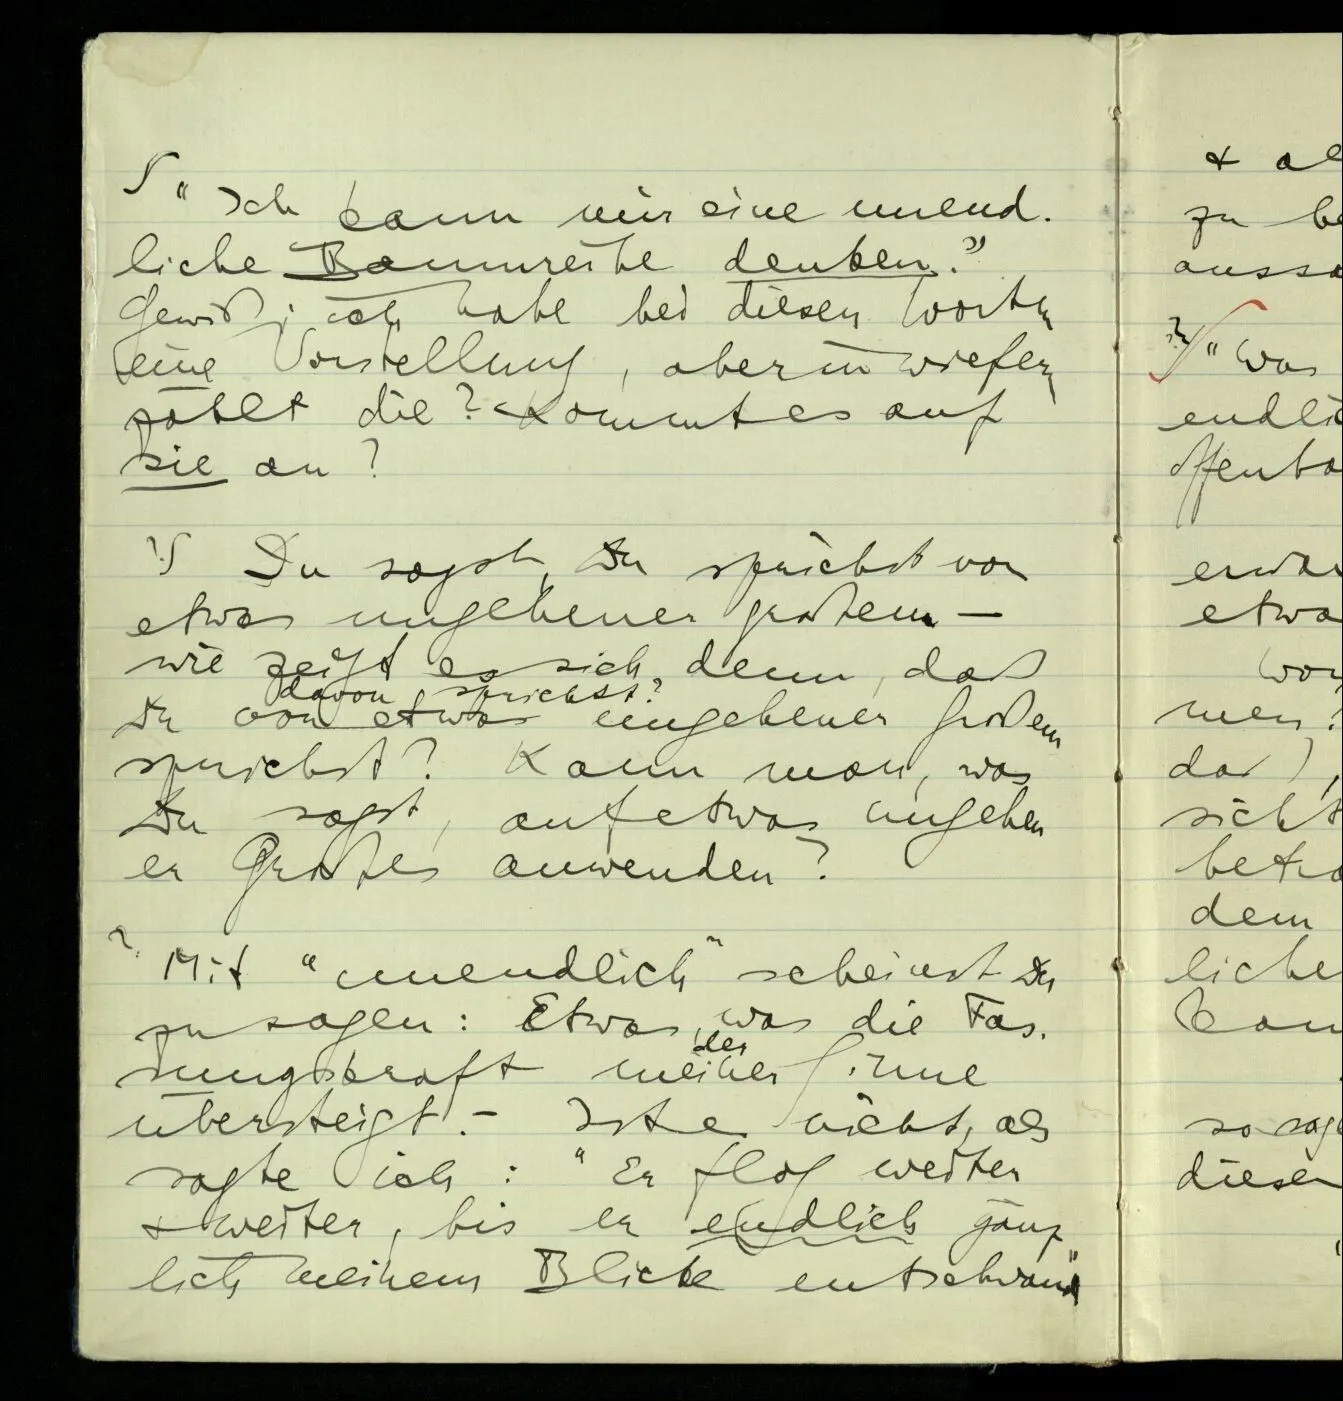 ∫ "Ich kann mir eine unend-
liche Baumreihe denken."
Gewiß; ich habe bei diesen Worten
eine Vorstellung, aber inwiefern
zählt die? Kommt es auf
sie an?
?∫ Du sagst, Du sprichst von
etwas ungeheuer großem –
wie zeigt es sich denn, daß
davon sprichst?
Du von etwas ungeheuer Großem
sprichst? Kann man, was
Du sagst, auf etwas ungeheu
er Großes anwenden?
? Mit "unendlich" scheinst Du
zu sagen: Etwas, was die Fas-
der
sungskraft meiner Sinne
übersteigt. – Ist es nicht, als
sagte ich: "Er flog weiter
& weiter, bis er endlich gänz
lich meinem Blicke entschwand"
& al
zu be
aussa
?∫ "Was
endlic
offenba
erwar
etwa
Wor
men?
das),
sicht
betra
dem
liche
kan
so sag
dieser